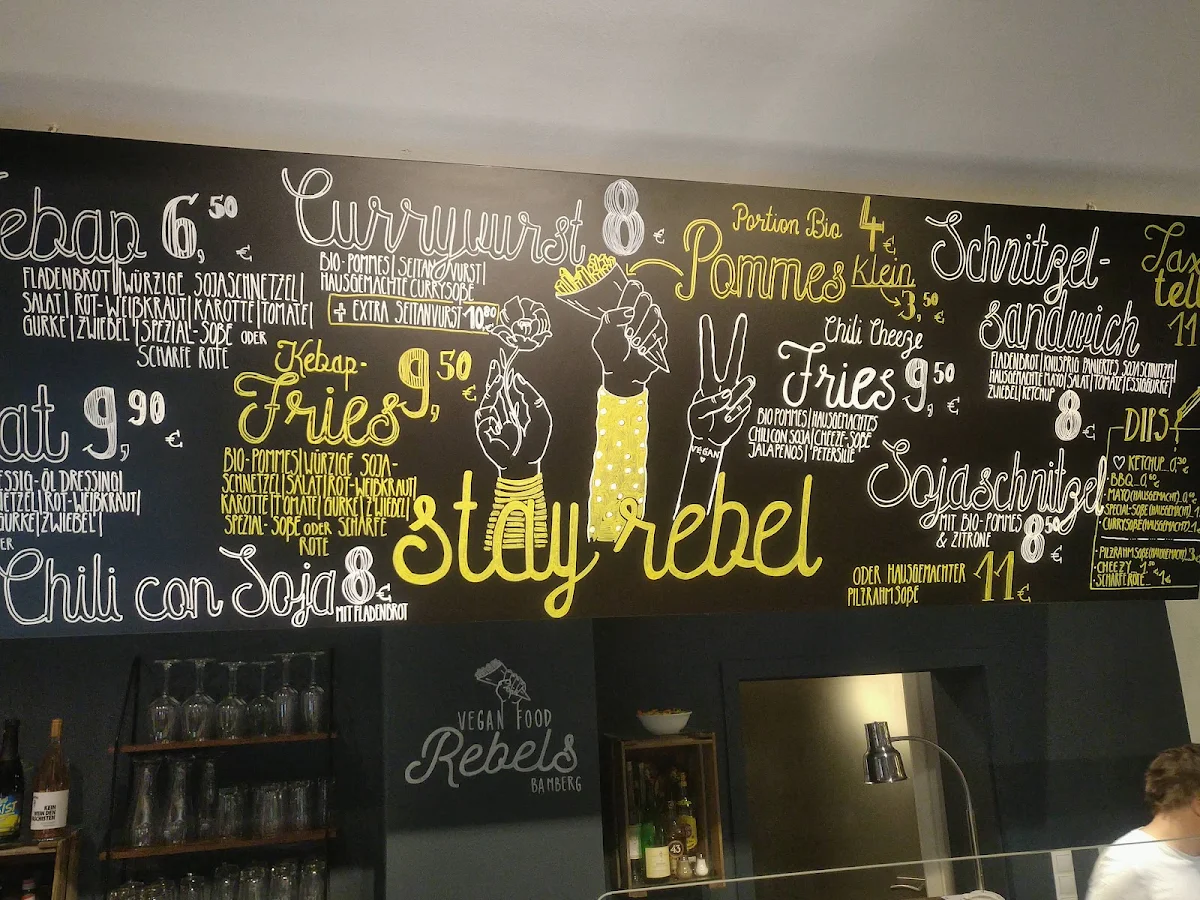 Kebap 6,50 €
FLADENBROT | WÜRZIGE SOJASCHNETZEL |
SALAT | ROT-WEIßKRAUT | KAROTTE | TOMATE |
GURKE | ZWIEBEL | SPEZIAL-SOßE ODER
SCHARFE ROTE
Currywurst 8 €
BIO-POMMES | SEITANWURST |
HAUSGEMACHTE CURRYSOßE
+ EXTRA SEITANWURST 10,80
Portion Bio 4 €
Pommes Klein
3,50 €
Schnitzel-
sandwich
FLADENBROT | KNUSPRIG PANIERTES SOJASCHNITZEL |
HAUSGEMACHTE MAYO | SALAT | TOMATE | ESSIGGURKE |
ZWIEBEL | KETCHUP 8 €
11
at 9,90 €
ESSIG-ÖL DRESSING |
ROT-WEIßKRAUT |
GURKE | ZWIEBEL |
Kebap-
Fries 9,50 €
BIO-POMMES | WÜRZIGE SOJA-
SCHNETZEL | SALAT | ROT-WEIßKRAUT |
KAROTTE | TOMATE | GURKE | ZWIEBEL |
SPEZIAL-SOßE ODER SCHARFE
ROTE
VEGAN
stay rebel
Chili Cheeze
Fries 9,50 €
BIO POMMES | HAUSGEMACHTES
CHILI CON SOJA | CHEEZE-SOßE
JALAPENOS | PETERSILIE
Sojaschnitzel
MIT BIO-POMMES
& ZITRONE 8,50 €
ODER HAUSGEMACHTER 11 €
PILZRAHMSOßE
DIPS
KETCHUP
BBQ
MAYO (HAUSGEMACHT)
SPECIAL-SOßE (HAUSGEMACHT)
CURRYSOßE (HAUSGEMACHT)
PILZRAHMSOßE (HAUSGEMACHT)
CHEEZY
SCHARFE ROTE
Chili con Soja 8 €
MIT FLADENBROT
VEGAN FOOD
Rebels
BAMBERG
43